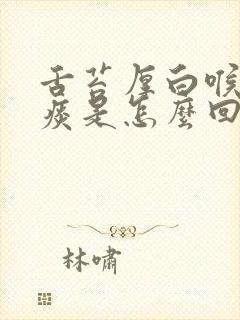 舌苔厚白喉
痰是怎麼回
林嘯